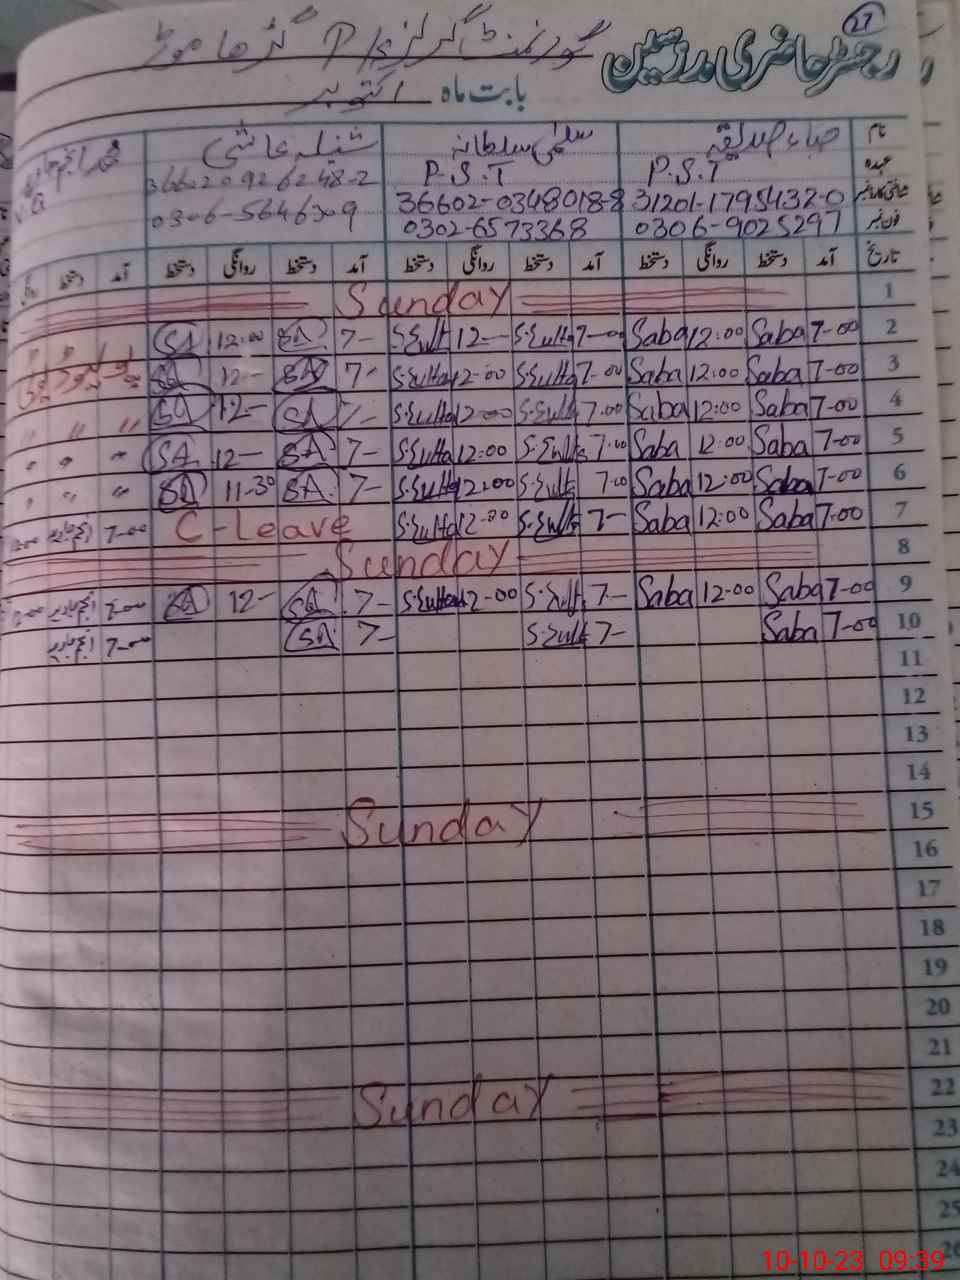 27
رجسٹر حاضری مدرسین گورنمنٹ گرلز P/S گڑھا موڑ
بابت ماہ اکتوبر
نام صباء صدیقہ سلمیٰ سلطانہ شنیلہ عاشق
عہدہ P.S.T P.S.T 36602 0926248-2
شناختی کارڈ نمبر 31201-1795432-0 36602-0348018-8
فون نمبر 0306-9025297 0302-6573368 0306-5646309
تاریخ آمد دستخط روانگی دستخط آمد دستخط روانگی دستخط آمد دستخط روانگی دستخط آمد دستخط
1 Sunday
2 7-00 Saba 12:00 Saba 7-00 S.Sulta 12- S.Sult 7- SA 12:00 SA
3 7-00 Saba 12:00 Saba 7-00 S.Sulta 12-00 S.Sulta 7- SA 12- SA
4 7-00 Saba 12:00 Saba 7.00 S.Sulta 12-00 S.Sulta 7- SA 12- SA
5 7-00 Saba 12:00 Saba 7.00 S.Sulta 12:00 S.Sulta 7- SA 12- SA
6 7-00 Saba 12:00 Saba 7.00 S.Sulta 12:00 S.Sulta 7- SA 11-30 SA
7 7-00 Saba 12:00 Saba 7- S.Sulta 12-00 S.Sulta C-Leave 7-00
8 Sunday
9 7-00 Saba 12-00 Saba 7- S.Sulta 12-00 S.Sulta 7- SA 12- SA 7-00
10 7-00 Saba 7- S.Sulta 7- SA 7-00
11
12
13
14
15 Sunday
16
17
18
19
20
21
22 Sunday
23
24
25
26
10-10-23 09:39